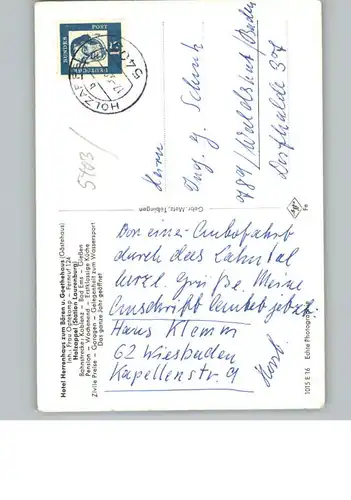 Hotel Herrenhaus zum Bären u. Goethehaus (Gästehaus)
Inh.: Frau Opterkamp — Fernruf 124
Holzappel (Station Laurenburg)
Bahnstrecke: Koblenz — Bad Ems — Gießen
Pension — Wochenend — Erstklassige Küche
Zivile Preise — Garagen — Gelegenheit zum Wassersport
Das ganze Jahr geöffnet
Von einer Autofahrt
durch das Lahntal
herzl. Grüße. Meine
Anschrift lautet jetzt
Hans Klemm
62 Wiesbaden
Kapellenstr. 9
Gebr. Metz, Tübingen
DEUTSCHE
BUNDES
POST
HOLZAPPEL
540
5403
Herrn
Ing. J. Schuh
789/ Waldshut/Baden
Dorfhalde 37
Fe
1015 E 16 Echte Photogr